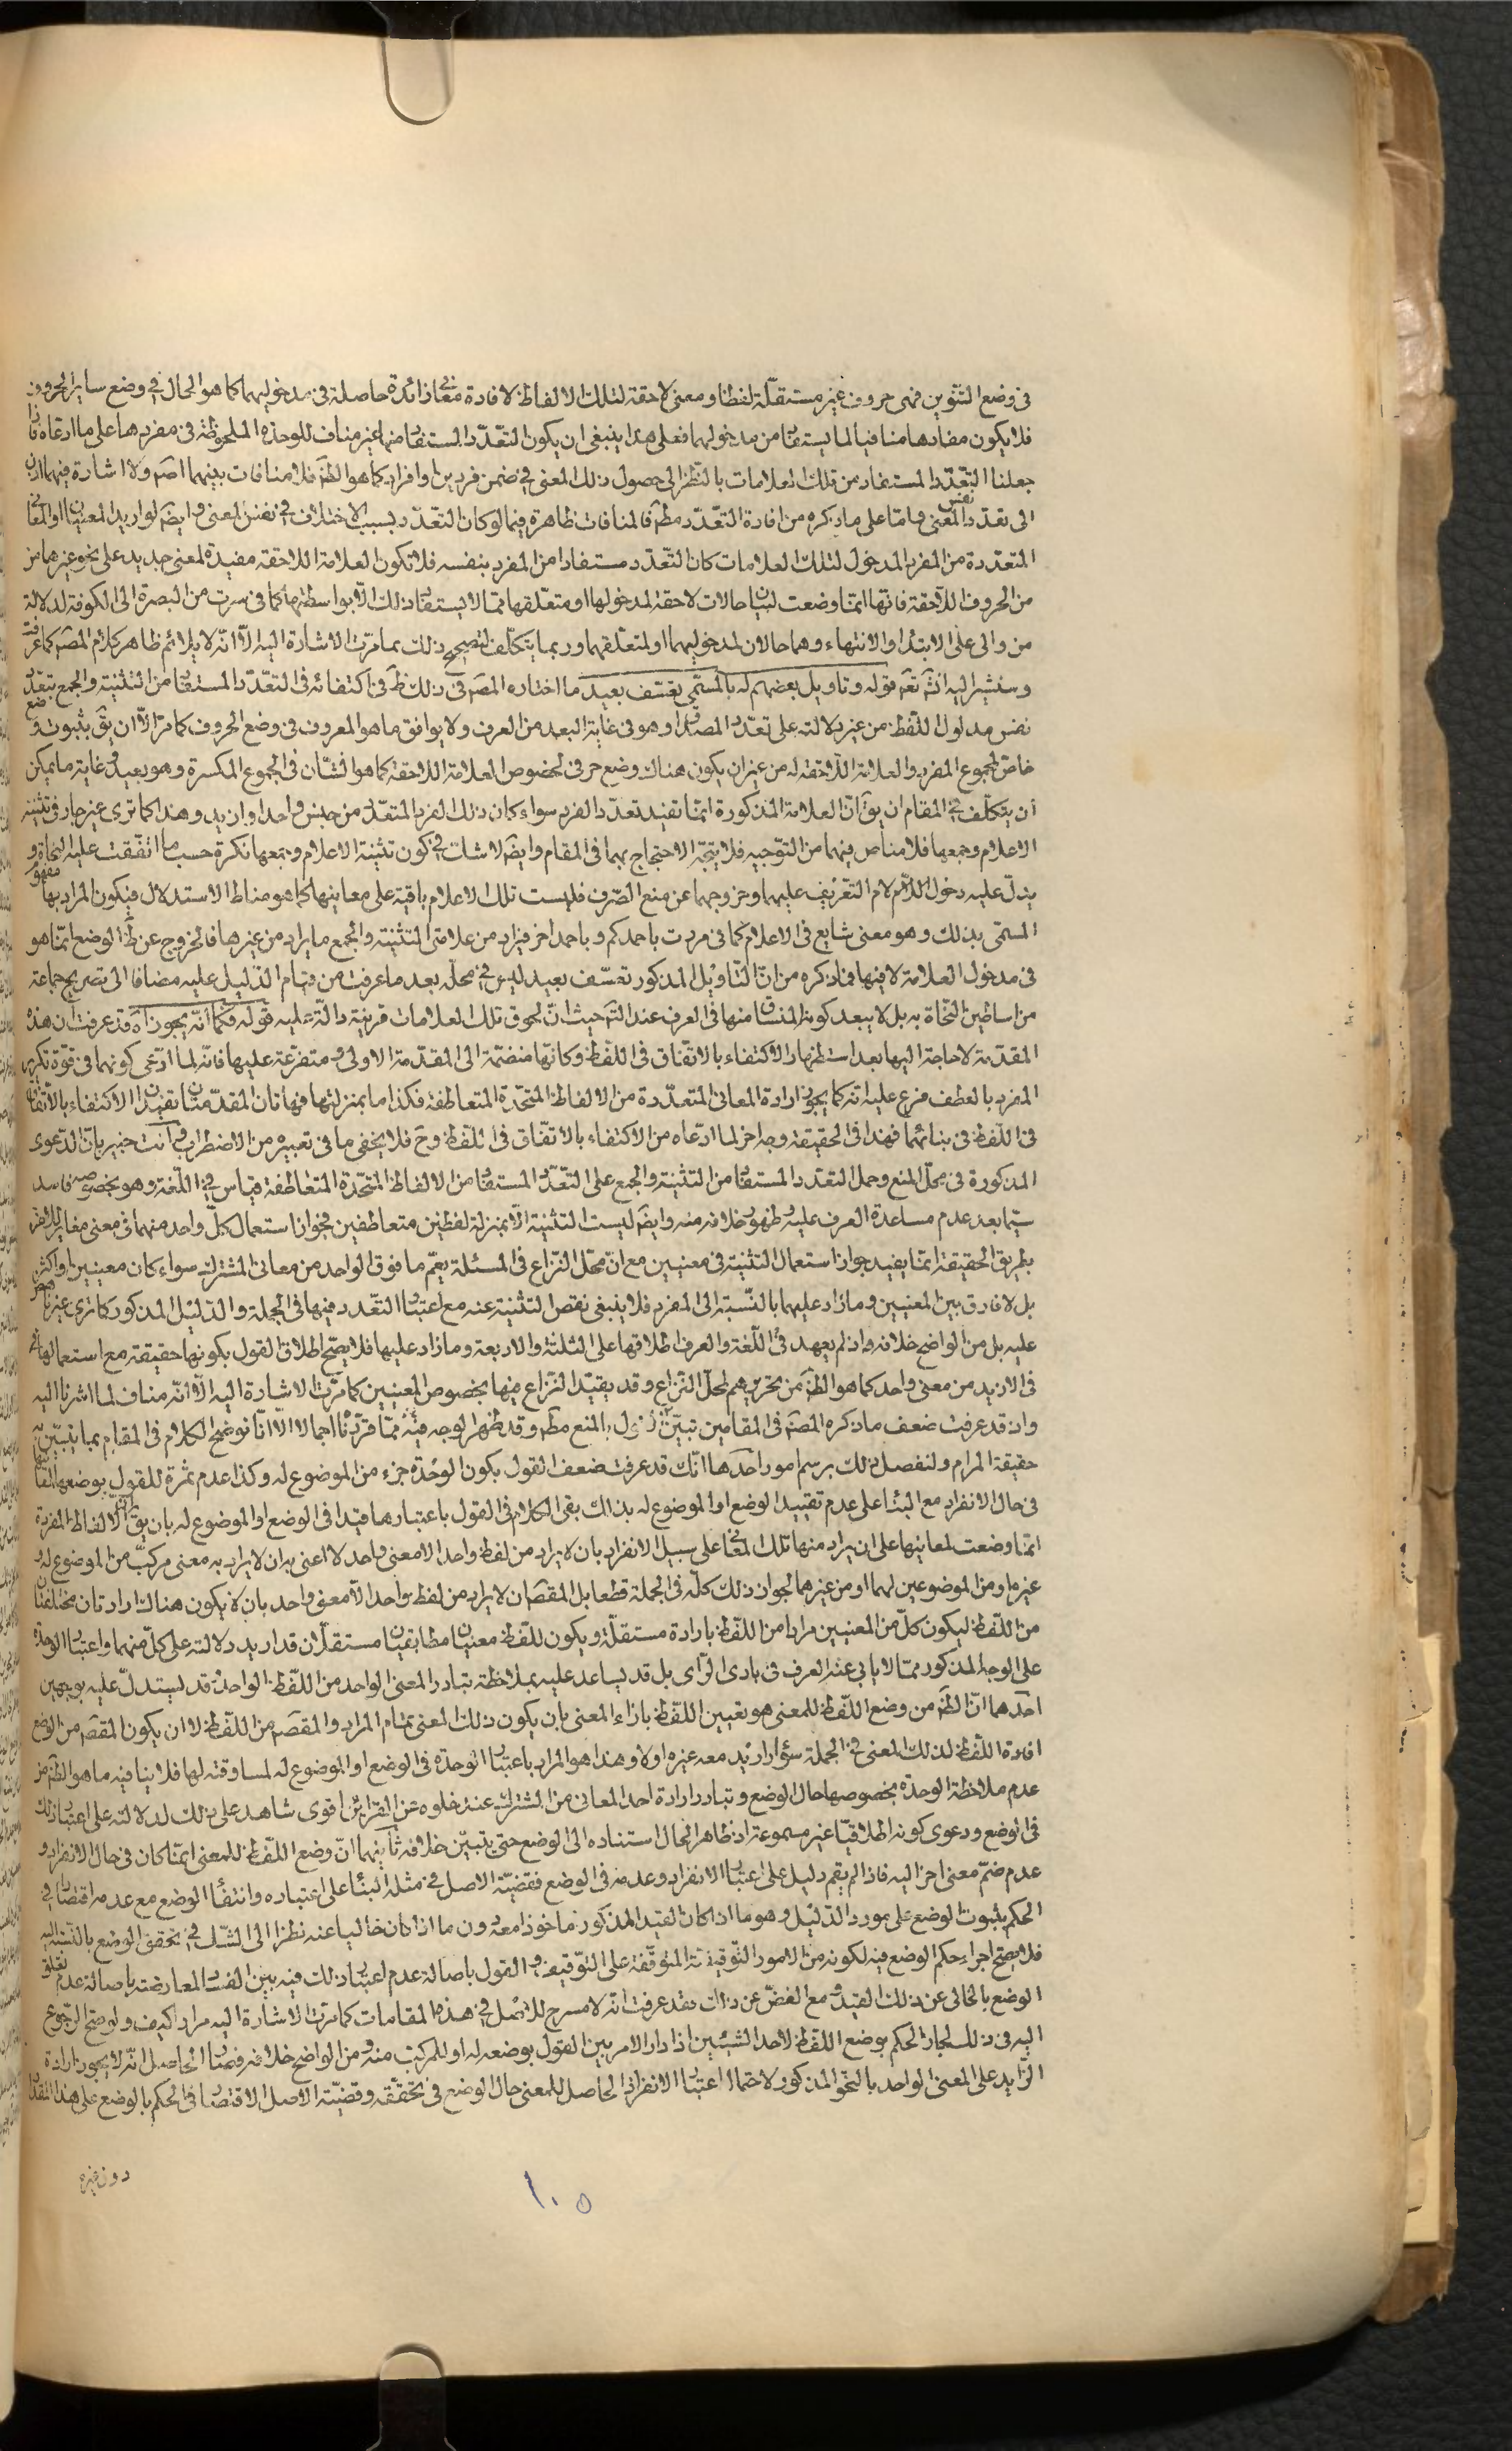 فى وضع التنوين فهى حروف غير مستقلّة لفظا ومعنى لاحقة لتلك الالفاظ لافادة معان زائدة حاصلة فى مدخوليهما كما هو الحال فى وضع ساير الحروف
فلا يكون مفادها منافيا لما يستفاد من مدخولهما فعلى هذا ينبغى ان يكون التعدّد المستفاد منهما غير مناف للوحدة الملحوظة فى مفردها على ما ادعاه فان
جعلنا التعدّد المستفاد من تلك العلامات بالنّظر الى حصول ذلك المعنى فى ضمن فردين او افراد كما هو الظّ فلا منافات بينهما اصلا ولا اشارة فيهما اذن
الى تعدّد نفس المعنى وامّا على ما ذكره من افادة التعدّد مطلقا فالمنافات ظاهرة فيما لو كان التعدّد بسبب الاختلاف فى نفس المعنى وايضا لو اريد المعنيان او المعانى
المتعدّدة من المفرد المدخول لتلك العلامات كان التعدّد مستفادا من المفرد بنفسه فلا تكون العلامة اللاحقة مفيدة لمعنى جديد على نحو غيرها من
من الحروف اللاحقة فانّها انّما وضعت لبيان حالات لاحقة لمدخولها او متعلّقها ممّا لا يستفاد ذلك الّا بواسطتها كما فى سرت من البصرة الى الكوفة لدلالة
من والى على الابتداء والانتهاء وهما حالان لمدخوليهما او لمتعلّقهما وربما يتكلّف لتصحيح ذلك بما مرّت الاشارة اليه الّا انّه لا يلائم ظاهر كلام المصّ كما عرفت
وسنشير اليه انش تعم قوله وتاويل بعضهم له بالمسمّى تعسّف بعيد ما اختاره المصّ فى ذلك ظ فى اكتفائه فى التعدّد المستفاد من التثنية والجمع بتعدّد
نفس مدلول اللّفظ من غير دلالته على تعدّد المصداق وهو فى غاية البعد من العرف ولا يوافق ما هو المعروف فى وضع الحروف كما مرّ الّا ان يق بثبوت وضع
خاصّ لمجموع المفرد والعلامة اللاحقة له من غير ان يكون هناك وضع حرفى لخصوص العلامة اللاحقة كما هو الشّان فى الجموع المكسرة وهو بعيد وغاية ما يمكن
ان يتكلّف فى المقام ان يق انّ العلامة المذكورة انّما تفيد تعدّد الفرد سواء كان ذلك الفرد المتعدّد من جنس واحد او ازيد وهذا كما ترى غير جار فى تثنية
الاعلام وجمعها فلا مناص فيهما من التّوجيه فلا يتّجه الاحتجاج بهما فى المقام وايضا لا شك فى كون تثنية الاعلام وجمعها نكرة حسب ما اتّفقت عليه النحاة و
يدلّ عليه دخول اللّام لام التّعريف عليهما وخروجهما عن منع الصّرف فليست تلك الاعلام باقية على معانيها كما هو مناط الاستدلال فيكون المراد بها مفهوم
المسمّى بذلك وهو معنى شايع فى الاعلام كما فى مررت باحمدكم وباحمد اخر فيراد من علامتى التثنية والجمع ما يراد من غيرها فالخروج عن ظ الوضع انّما هو
فى مدخول العلامة لا فيها فما ذكره من انّ التّاويل المذكور تعسّف بعيد ليس فى محلّه بعد ما عرفت من قيام الدّليل عليه مضافا الى تصريح جماعة
من اساطين النّحاة به بل لا يبعد كونه المنساق منها فى العرف عند التّ حيث انّ لحوق تلك العلامات قرينة دالّة عليه قوله فكما انّه يجوز اه قد عرفت ان هذه
المقدّمة لا حاجة اليها بعد استظهار الاكتفاء بالاتّفاق فى اللّفظ وكانّها منضمّة الى المقدّمة الاولى ومتفرّعة عليها فانّه لما ادّعى كونهما فى قوّة تكرير
المفرد بالعطف فرع عليه انّه كما يجوز ارادة المعانى المتعدّدة من الالفاظ المتّحدة المتعاطفة فكذا ما بمنزلتها فهاتان المقدّمتان تفيدان الاكتفاء بالاتّفاق
فى اللّفظ فى بنائهما فهذا فى الحقيقة وجه اخر لما ادّعاه من الاكتفاء بالاتّفاق فى اللّفظ وح فلا يخفى ما فى تعبيره من الاضطراب وانت خبير بانّ الدّعوى
المذكورة فى محلّ المنع وحمل التعدّد المستفاد من التثنية والجمع على التعدّد المستفاد من الالفاظ المتّحدة المتعاطفة قياس فى اللّغة وهو بخصوصه فاسد
سيّما بعد عدم مساعدة العرف عليه وظهور خلافه منه وايضا ليست التثنية الّا بمنزلة لفظين متعاطفين فجواز استعمال كلّ واحد منهما فى معنى مغاير للاخر
بطريق الحقيقة انّما يفيد جواز استعمال التثنية فى معنيين مع انّ محلّ النّزاع فى المسئلة يعمّ ما فوق الواحد من معانى المشترك سواء كان معنيين او اكثر
بل لا فارق بين المعنيين وما زاد عليهما بالنّسبة الى المفرد فلا ينبغى نقص التثنية عنه مع اعتبار التعدّد فيها فى الجملة والدّليل المذكور كما ترى غير ناهض
عليه بل من الواضح خلافه واذ لم يعهد فى اللّغة والعرف اطلاقها على الثلثة والاربعة وما زاد عليها فلا يصحّ اطلاق القول بكونها حقيقة مع استعمالها
فى الازيد من معنى واحد كما هو الظّ من تحريرهم لمحلّ النّزاع وقد يقيّد النّزاع فيها بخصوص المعنيين كما مرّت الاشارة اليه الّا انّه مناف لما اشرنا اليه
واذ قد عرفت ضعف ما ذكره المصّ فى المقامين تبيّن القول بالمنع مطلقا وقد ظهر الوجه فيه ممّا قرّرنا اجمالا الّا انّا نوضح الكلام فى المقام بما يتبيّن به
حقيقة المرام ولنفصل ذلك برسم امور احدها انّك قد عرفت ضعف القول بكون الوحدة جزء من الموضوع له وكذا عدم ثمرة للقول بوضعها لها
فى حال الانفراد مع البناء على عدم تقييد الوضع او الموضوع له بذاك بقى الكلام فى القول باعتبارها قيدا فى الوضع او الموضوع له بان يق انّ الالفاظ المفردة
انّما وضعت لمعانيها على ان يراد منها تلك المعانى على سبيل الانفراد بان لا يراد من لفظ واحد الا معنى واحد لا اعنى به ان لا يراد به معنى مركبّ من الموضوع له و
غيره او من الموضوعين لهما او من غيرهما لجواز ذلك كلّه فى الجملة قطعا بل المقصّ ان لا يراد من لفظ واحد الّا معنى واحد بان لا يكون هناك ارادتان مختلفتان
من اللّفظ ليكون كلّ من المعنيين مرادا من اللّفظ بارادة مستقلّة ويكون للّفظ معنيان مطابقيان مستقلّان قد اريد دلالته على كلّ منهما واعتبار الوحدة
على الوجه المذكور ممّا لا يابى عنه العرف فى بادى الرّاى بل قد يساعد عليه بملاحظة تبادر المعنى الواحد من اللّفظ الواحد وقد يستدلّ عليه بوجهين
احدهما انّ الظّ من وضع اللّفظ للمعنى هو تعيين اللّفظ بازاء المعنى بان يكون ذلك المعنى تمام المراد والمقصّ من اللّفظ لا ان يكون المقصّ من الوضع
افادة اللّفظ لذلك المعنى فى الجملة سواء اريد معه غيره او لا وهذا هو المراد باعتبار الوحدة فى الوضع او الموضوع له لمساوقته لها فلا ينافيه ما هو الظّ من
عدم ملاحظة الوحدة بخصوصها حال الوضع وتبادر ارادة احد المعانى من المشترك عند خلوه عن القرائن اقوى شاهد على ذلك لدلالته على اعتبار ذلك
فى الوضع ودعوى كونه اطلاقيّا غير مسموعة اذ ظاهر الحال استناده الى الوضع حتى يتبيّن خلافه ثانيهما انّ وضع اللّفظ للمعنى انّما كان فى حال الانفراد و
عدم ضمّ معنى اخر اليه فاذا لم يقم دليل على اعتبار الانفراد وعدمه فى الوضع فقضيّة الاصل فى مثله البناء على اعتباره وانتفاء الوضع مع عدمه اقتصارا فى
الحكم بثبوت الوضع على مورد الدّليل وهو ما اذا كان القيد المذكور ماخوذا معه دون ما اذا كان خاليا عنه نظرا الى الشّك فى تحقق الوضع بالنّسبة اليه
فلا يصحّ اجراء حكم الوضع فيه لكونه من الامور التّوقيفيّة المتوقّفة على التّوقيف والقول باصالة عدم اعتبار ذلك فيه بيّن الفساد لمعارضته باصالة عدم تعلّق
الوضع بالخالى عن ذلك القيد ومع الغضّ عن ذلك فقد عرفت انّه لا مسرح للاصل فى هذه المقامات كما مرّت الاشارة اليه مرارا كيف ولو صحّ الرّجوع
اليه فى ذلك لجاز الحكم بوضع اللفظ لاحد الشيئين اذا دار الامر بين القول بوضعه له او للمركب منه ومن الواضح خلافه فيهما الحاصل انّه لا يجوز ارادة
الزّايد على المعنى الواحد بالنّحو المذكور لاحتمال اعتبار الانفراد الحاصل للمعنى حال الوضع فى تحقّقه وقضيّة الاصل الاقتصار فى الحكم بالوضع على هذا المقدار
دون غيره
١٠٥